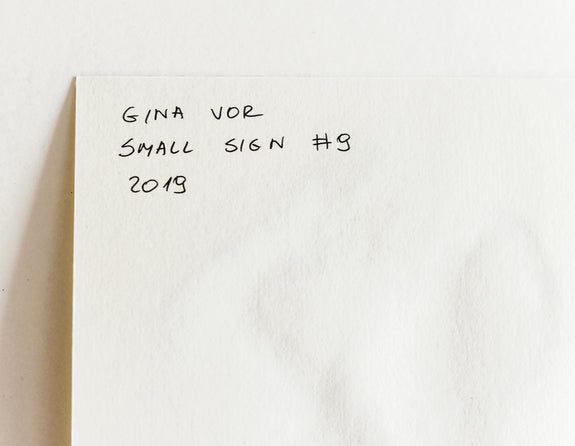 GINA VOR
SMALL SIGN #9
2019